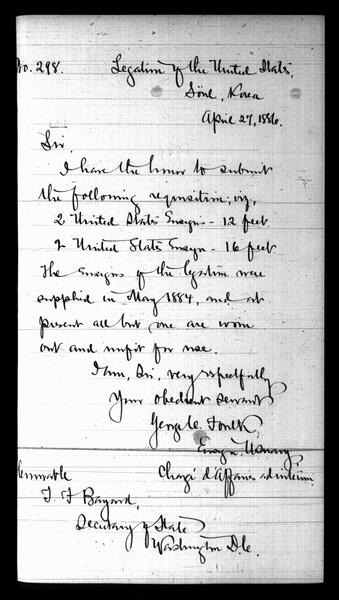 No. 298.
Legation of the United States,
Söul, Korea
April 27, 1886.
Sir,
I have the honor to submit
the following requisition; viz,
2 United States Ensign - 12 feet
2 United States Ensign - 16 feet
The Ensigns of the Legation were
supplied in May 1884, and at
present all but one are worn
out and unfit for use.
I am, Sir, very respectfully
Your obedient servant
George C. Foulk,
Ensign, U.S. Navy
Chargé d'Affaires ad interim
T. F. Bayard,
Secretary of State
Washington D.C.